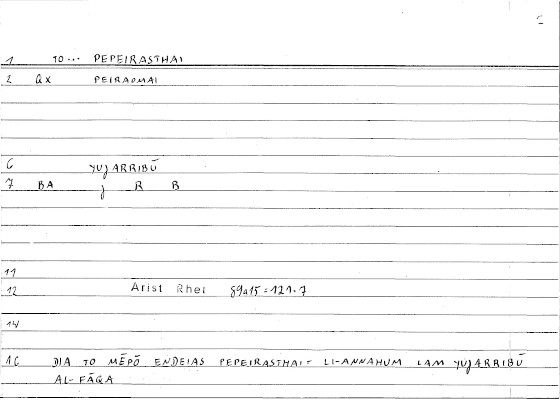 1 TO... PEPEIRASTHAI
2 QX PEIRAOMAI
6 YUJARRIBŪ
7 BA J R B
11
12 Arist Rhet 89a15=121.7
14
16 DIA TO MĒPŌ ENDEIAS PEPEIRASTHAI = LI-ANNAHUM LAM YUJARRIBŪ
AL-FĀQA